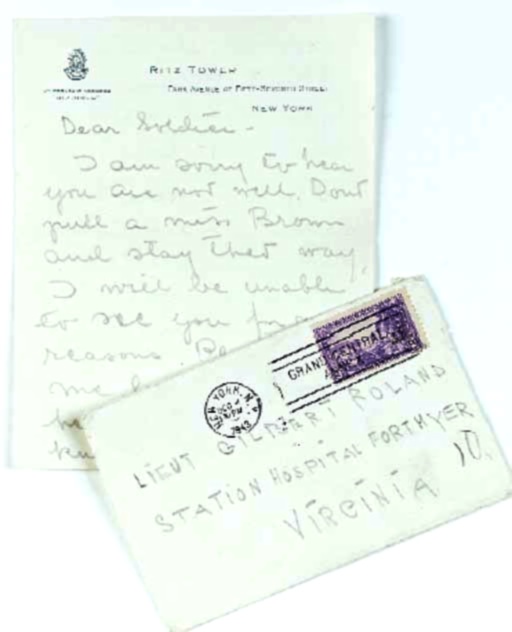 RITZ TOWER
PARK AVENUE AT FIFTY-SEVENTH STREET
NEW YORK
Dear Soldier -
I am sorry to hear
you are not well. Dont
pull a miss Brown
and stay that way.
I will be unable
to see you for
reasons.
me
GRAND CENTRAL
NEW YORK, N.Y.
DEC
1943
LIEUT GILBERT ROLAND
STATION HOSPITAL FORT MYER
VIRGINIA